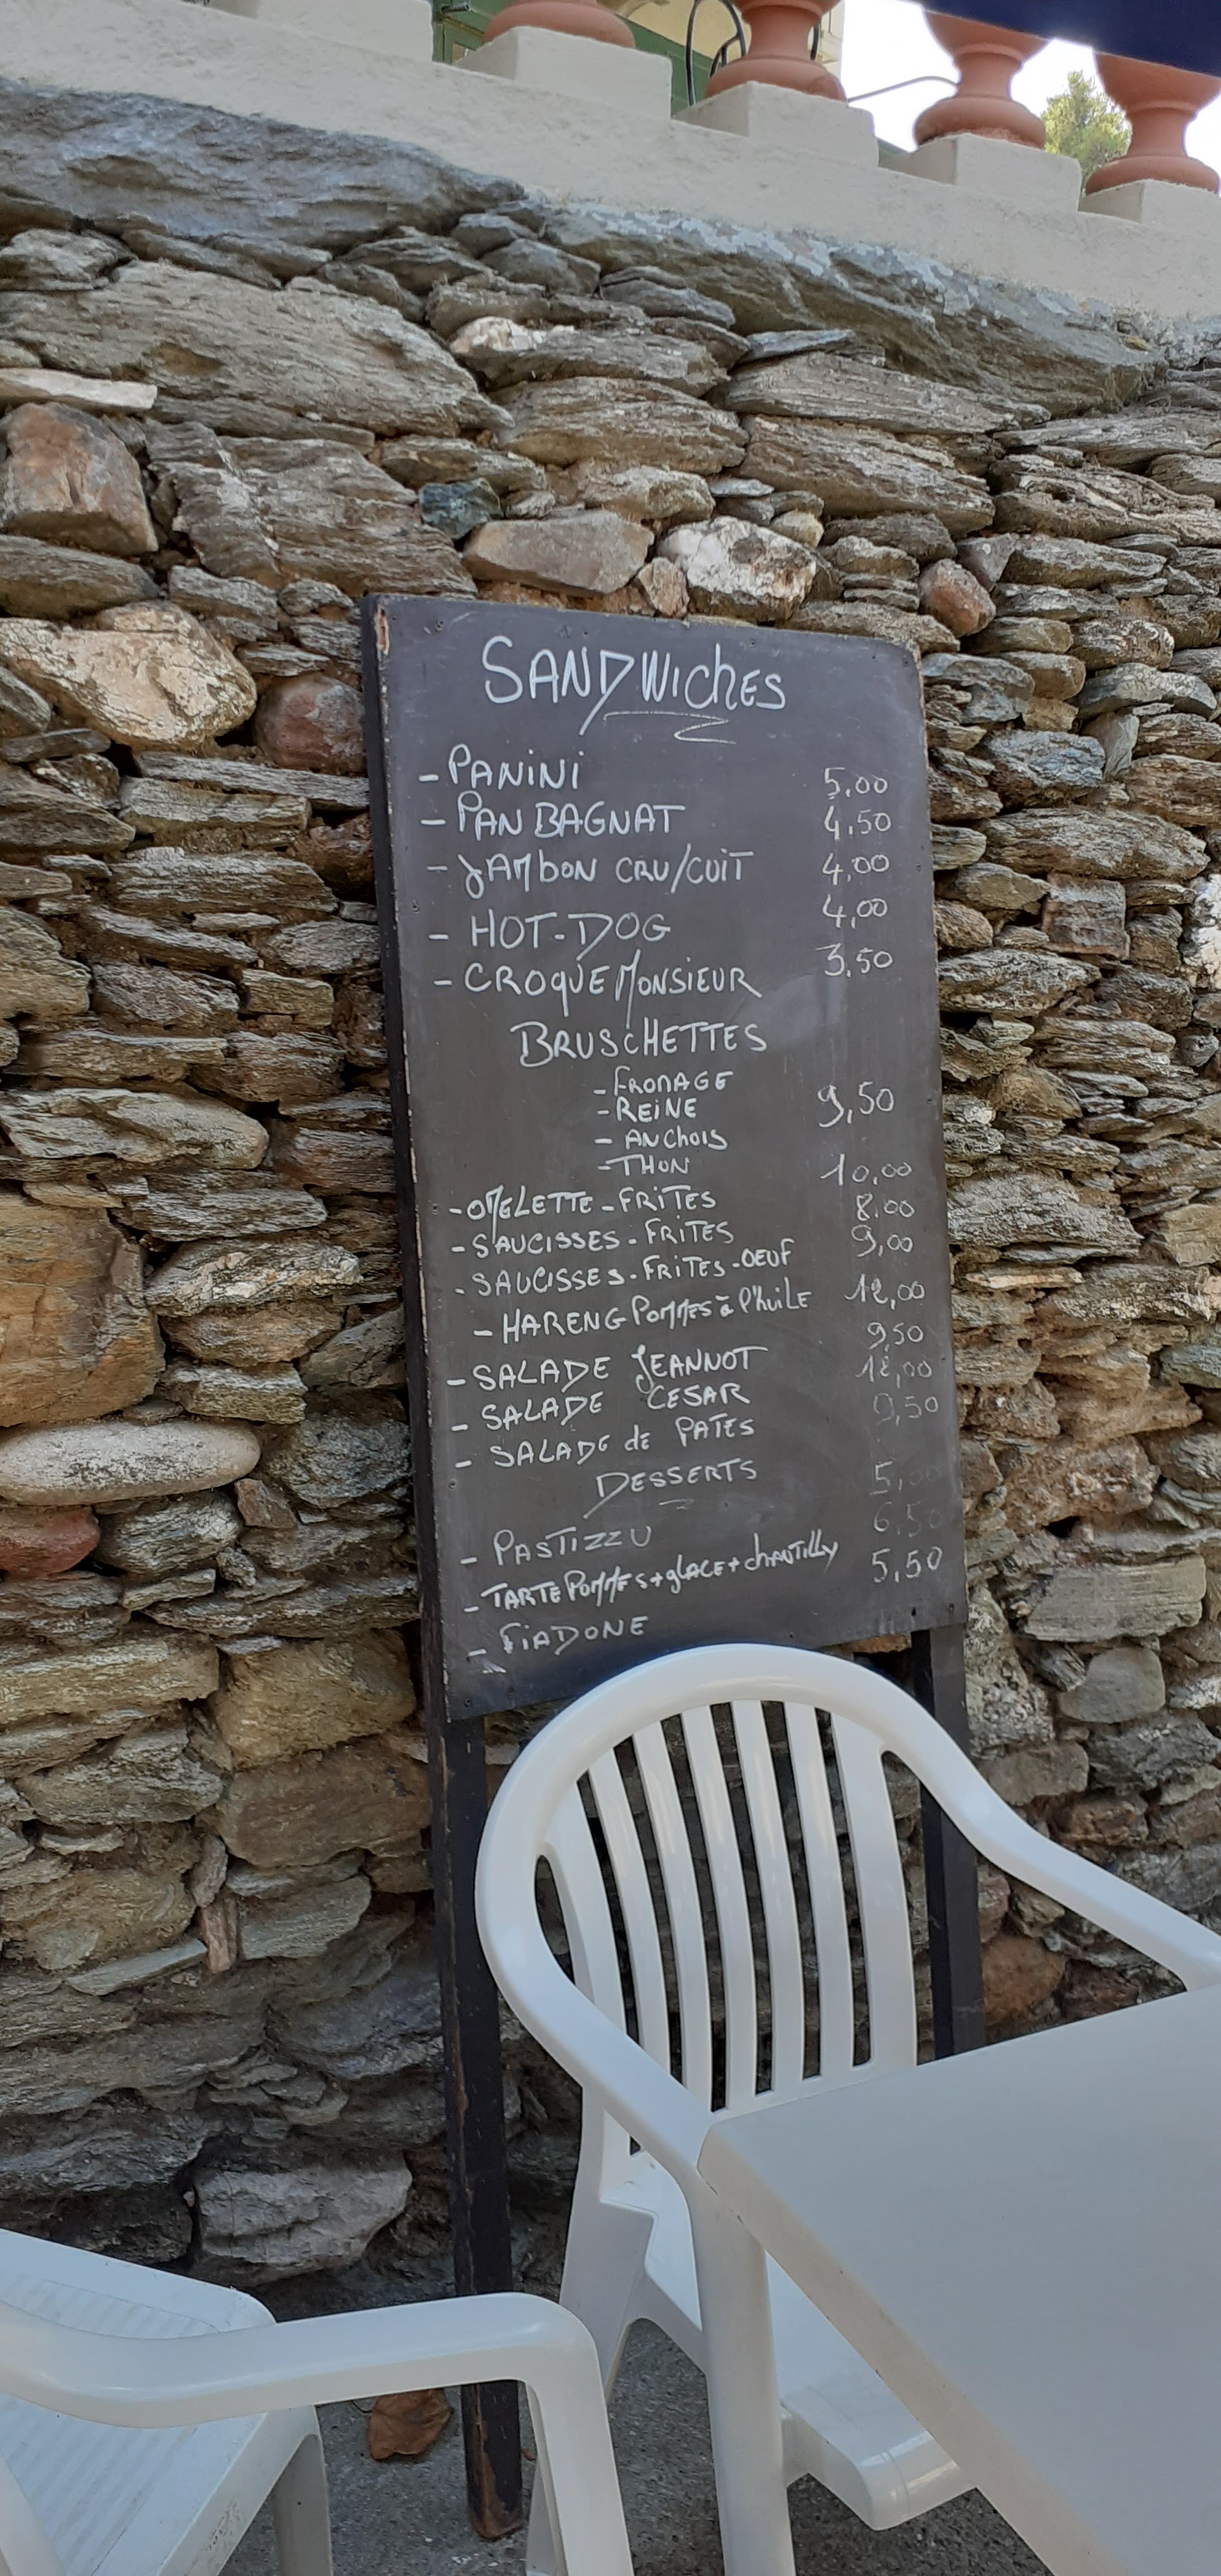 SANDWICHES
- PANINI 5,00
- PAN BAGNAT 4,50
- JAMBON CRU/CUIT 4,00
- HOT-DOG 4,00
- CROQUE MONSIEUR 3,50
BRUSCHETTES
- FROMAGE
- REINE 9,50
- ANCHOIS
- THON
- OMELETTE - FRITES 10,00
- SAUCISSES - FRITES 8,00
- SAUCISSES - FRITES - OEUF 9,00
- HARENG POMMES à l'huile 12,00
- SALADE JEANNOT 9,50
- SALADE CESAR 12,00
- SALADE de PATES 9,50
DESSERTS
- PASTIZZU 5,00
- TARTE POMMES + glace + chantilly 6,50
- FIADONE 5,50